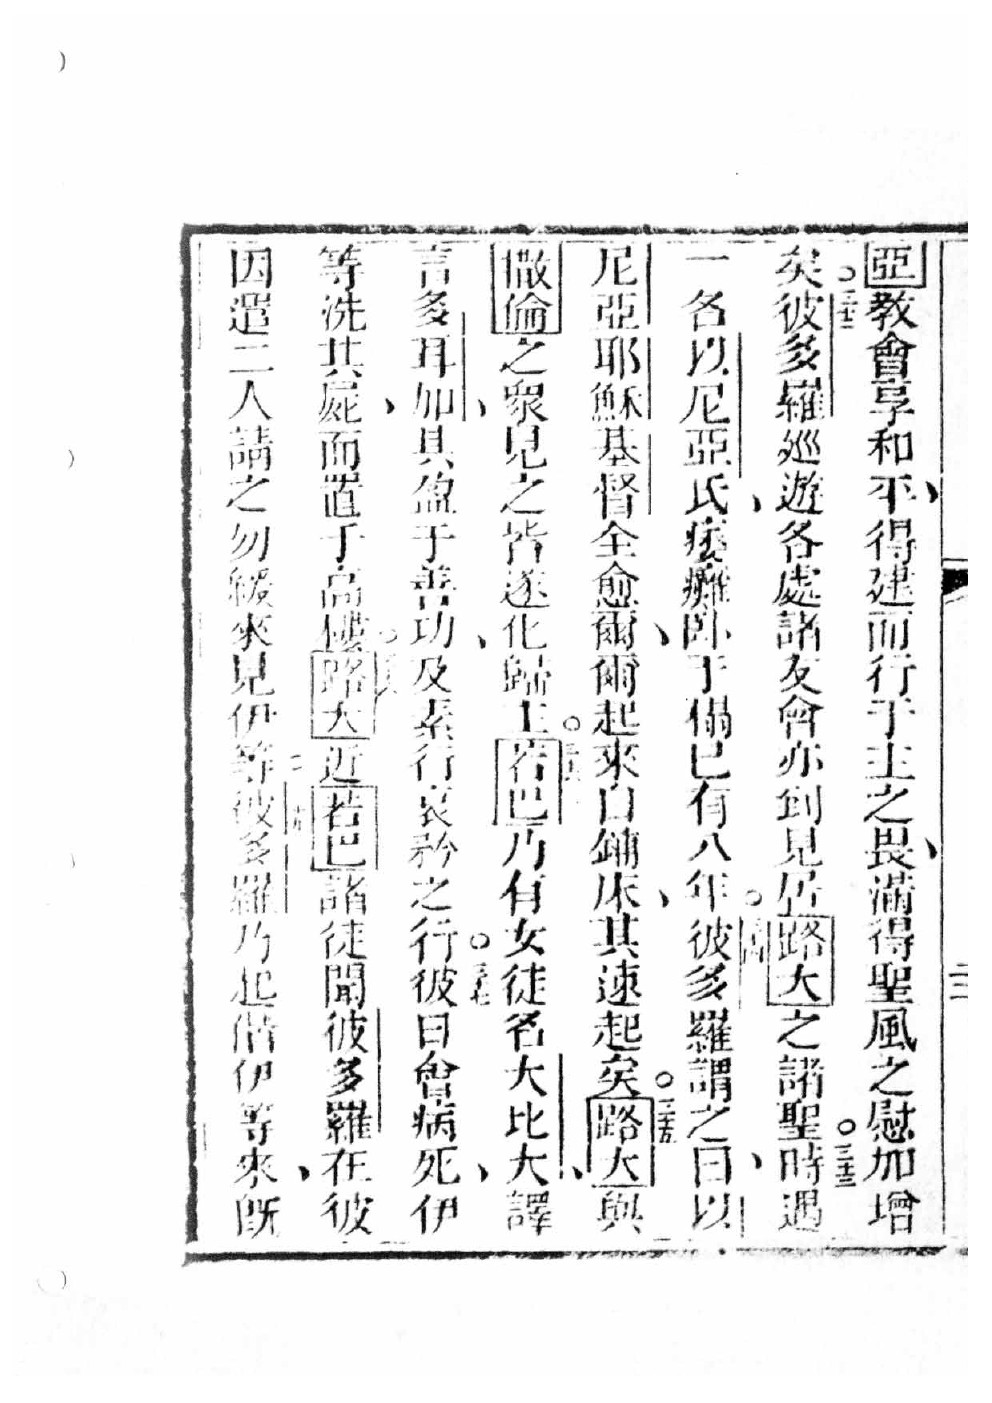 亞教會享和平、得建而行于主之畏、滿得聖風之慰加增
矣。三十二彼多羅巡遊各處諸友會亦到見居路大之諸聖。三十三時遇
一名以尼亞氏、癱癱臥于榻已有八年。三十四彼多羅謂之曰、以
尼亞耶穌基督全愈爾、爾起來自鋪床、其速起矣。三十五路大與
撒倫之眾見之皆遂化歸主。三十六若巴乃有女徒名大比大、譯
言多耳加、具盈于善功、及素行哀矜之行。三十七彼日曾病死、伊
等洗其屍、而置于高樓。三十八路大近若巴諸徒聞彼多羅在彼、
因遣二人請之勿緩來見伊等三十九彼多羅乃起偕伊等來既